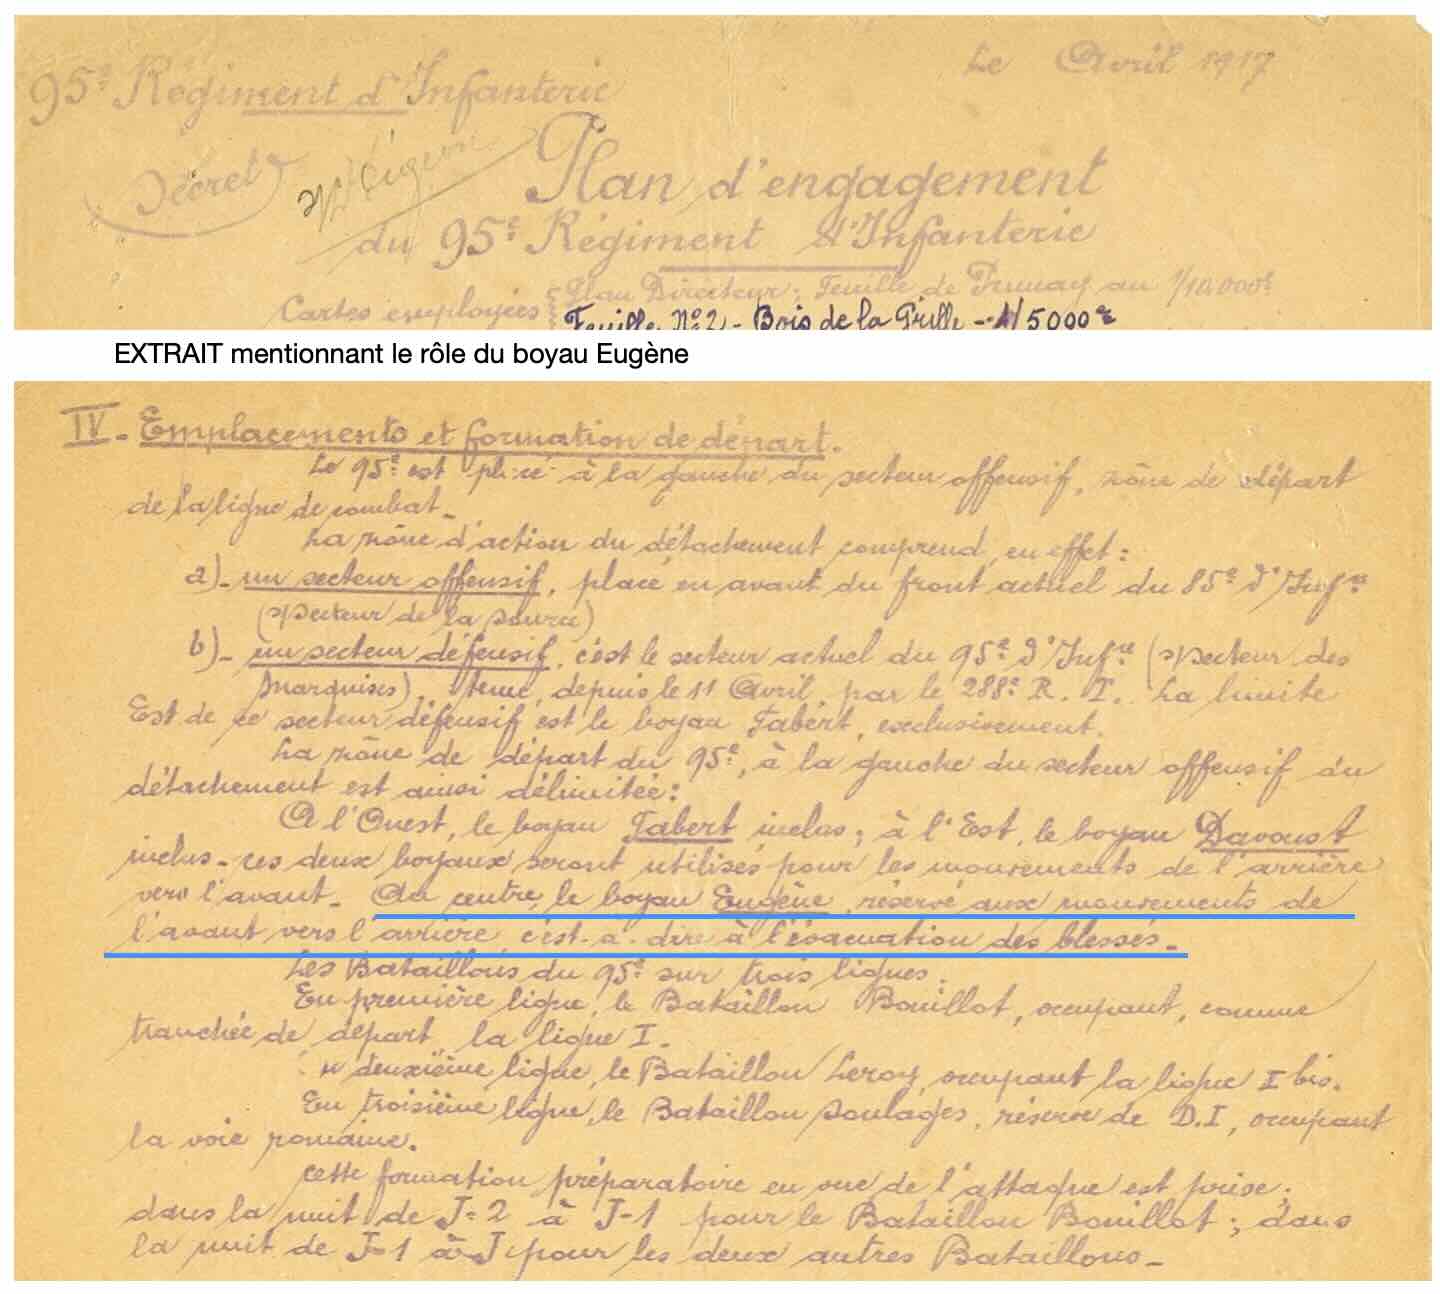 Le Avril 1917
95e Régiment d'Infanterie
Secret
Plan d'engagement
du 95e Régiment d'Infanterie
Cartes employées { Plan Directeur; Feuille de Prunay au 1/10.000e
Feuille No 2 - Bois de la Grille - 1/5000e
EXTRAIT mentionnant le rôle du boyau Eugène
IV - Emplacements et formation de départ.
Le 95e est placé à la gauche du secteur offensif, zône de départ
de la ligne de combat -
La zône d'action du détachement comprend, en effet :
a) - un secteur offensif, placé en avant du front actuel du 85e d'Infie
(Secteur de la Source)
b) - un secteur défensif, c'est le secteur actuel du 95e d'Infie (Secteur des
Marquises), tenu, depuis le 11 Avril, par le 288e R. I. La limite
Est de ce secteur défensif est le boyau Fabert, exclusivement.
La zône de départ du 95e, à la gauche du secteur offensif du
détachement est ainsi délimitée :
A l'Ouest, le boyau Fabert inclus ; à l'Est, le boyau Davoust
inclus - ces deux boyaux seront utilisés pour les mouvements de l'arrière
vers l'avant - Au centre, le boyau Eugène, réservé aux mouvements de
l'avant vers l'arrière, c'est-à-dire à l'évacuation des blessés -
Les Bataillons du 95e sur trois lignes :
En première ligne, le Bataillon Bouillot, occupant, comme
tranchée de départ, la ligne I -
deuxième ligne, le Bataillon Leroy, occupant la ligne I bis.
En troisième ligne, le Bataillon Soulages, réserve de D.I, occupant
la voie romaine.
Cette formation préparatoire en vue de l'attaque est prise :
dans la nuit de J-2 à J-1 pour le Bataillon Bouillot ; dans
la nuit de J-1 à J pour les deux autres Bataillons -